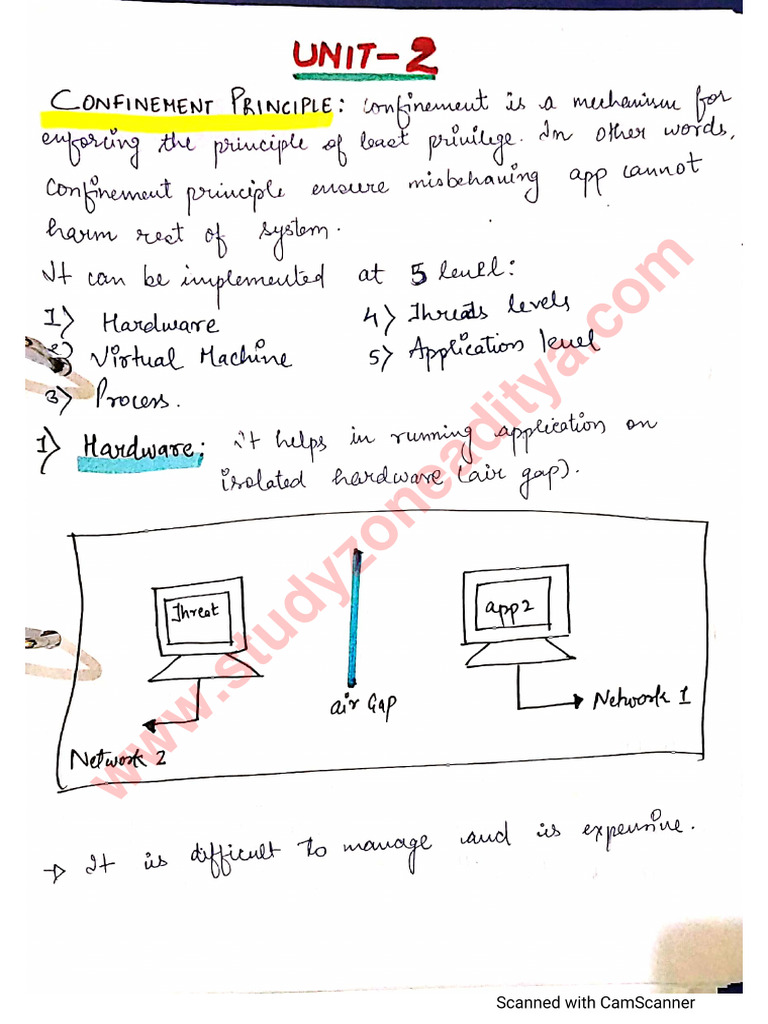 UNIT-2
CONFINEMENT PRINCIPLE: confinement is a mechanism for
enforcing the principle of least privilege. In other words,
confinement principle ensure misbehaving app cannot
harm rest of system.
It can be implemented at 5 level:
1) Hardware
2) Virtual Machine
3) Process.
4) Threads levels
5) Application level
1) Hardware: it helps in running application on
isolated hardware (air gap).
Threat
app2
air Gap
Network 1
Network 2
→ It is difficult to manage and is expensive.
www.studyzoneaditya.com
Scanned with CamScanner